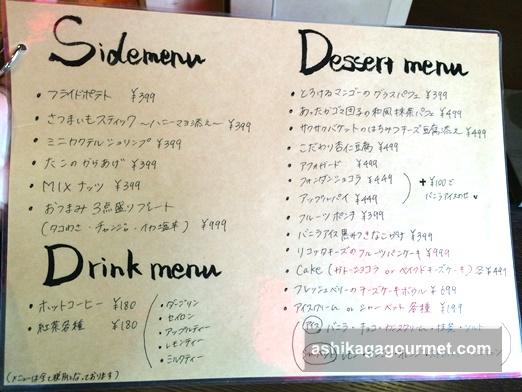 Sidemenu
・フライドポテト ¥399
・さつまいもスティック 〜ハニーマヨ添え〜 ¥399
・ミニカクテルシュリンプ ¥399
・たこのからあげ ¥399
・MIXナッツ ¥399
・おつまみ3点盛りプレート
(タコわさ・チャンジャ・イカ塩辛) ¥999
Drink menu
・ホットコーヒー ¥180
・紅茶各種 ¥180
・ダージリン
・セイロン
・アップルティー
・レモンティー
・ミルクティー
(メニューは全て税抜となっております)
Dessert menu
・とろけるマンゴーのグラスパフェ ¥399
・あったかゴマ団子の和風抹茶パフェ ¥499
・サクサクバケットのはちみつチーズ豆腐添え ¥499
・こだわり杏仁豆腐 ¥449
・アフォガード ¥449
・フォンダンショコラ ¥449
・アップルパイ ¥449
+¥100で
バニラアイスのせ
・フルーツポンチ ¥399
・バニラアイス黒みつきなこがけ ¥399
・リコッタチーズのフルーツパンケーキ ¥999
・Cake (ガトーショコラ or ベイクドチーズケーキ) 各¥499
・フレッシュベリーのチーズケーキボウル ¥699
・アイスクリーム or シャーベット 各種 ¥199
アイス バニラ・チョコ・
ashikagagourmet.com